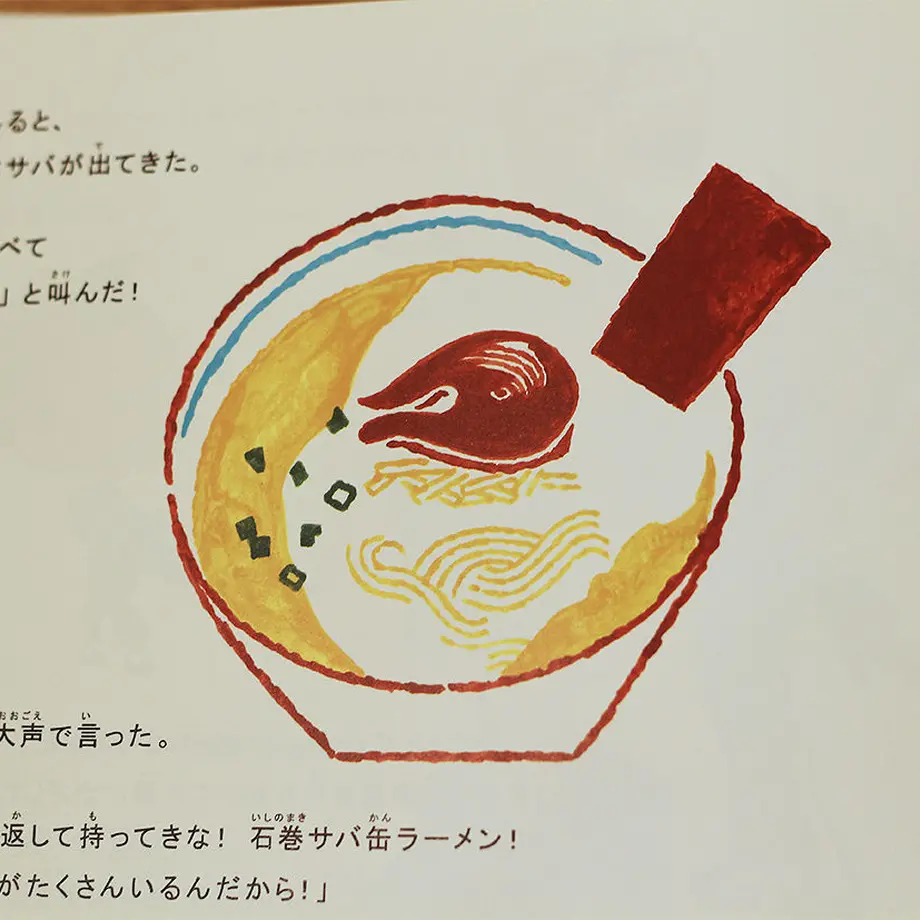 ると、
サバが出てきた。
べて
」と叫んだ！
大声で言った。
返して持ってきな！ 石巻サバ缶ラーメン！
がたくさんいるんだから！」